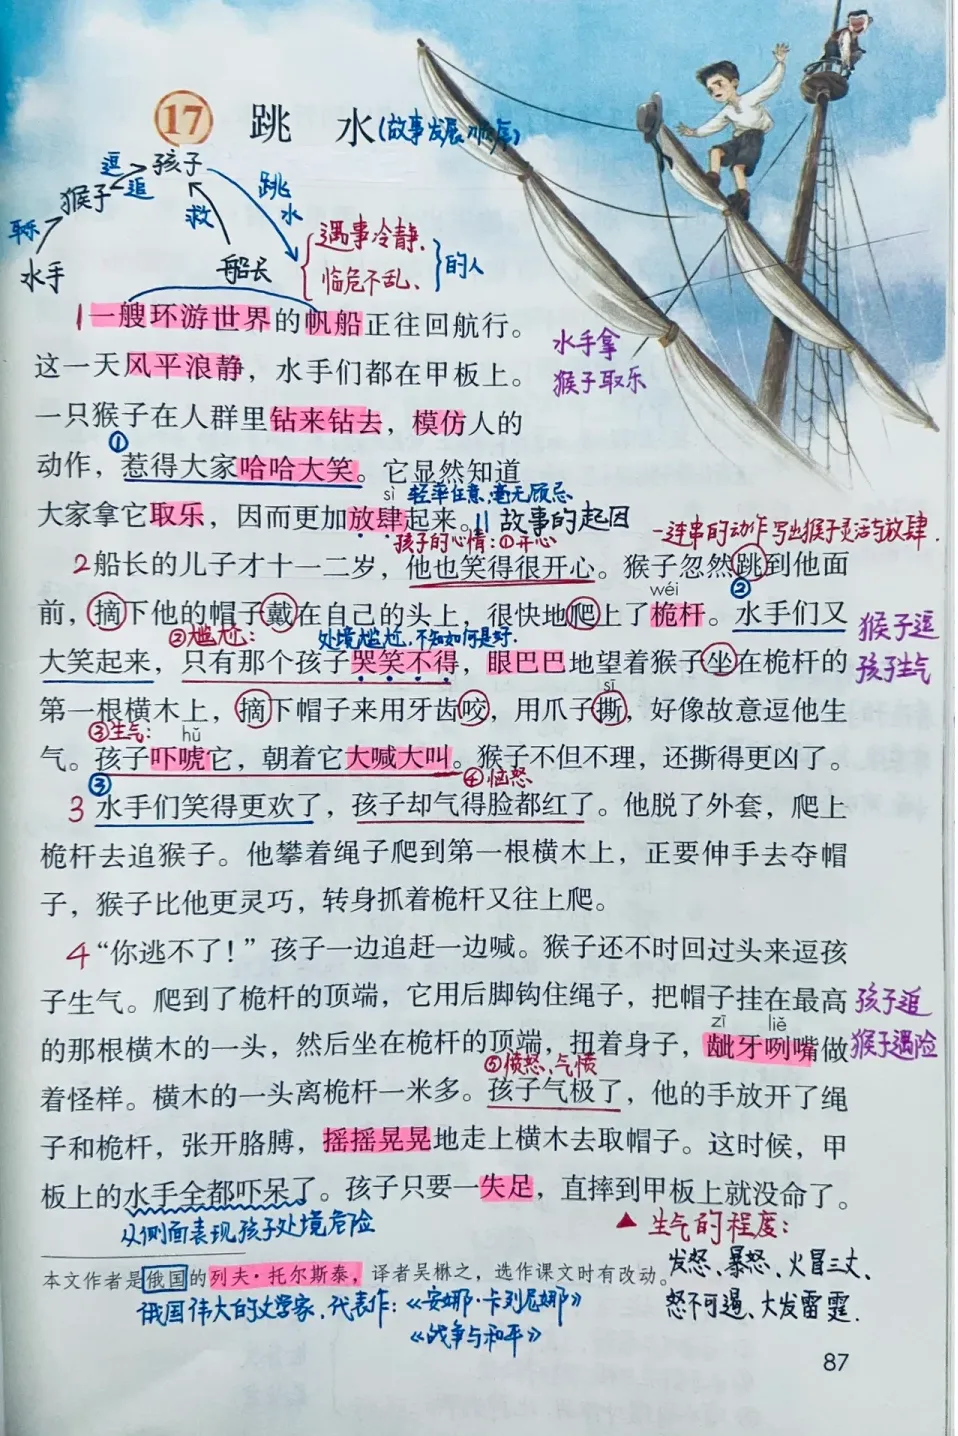 17 跳 水(故事发展顺序)
逗 孩子
猴子 追 跳
水
乐 救
水手 船长
遇事冷静、
临危不乱、
的人
1一艘环游世界的帆船正往回航行。
这一天风平浪静，水手们都在甲板上。
水手拿
猴子取乐
一只猴子在人群里钻来钻去，模仿人的
①
动作，惹得大家哈哈大笑。它显然知道
sì 轻率任意、毫无顾忌
大家拿它取乐，因而更加放肆起来。|| 故事的起因
孩子的心情：①开心
一连串的动作写出猴子灵活与放肆.
2船长的儿子才十一二岁，他也笑得很开心。猴子忽然跳到他面
wéi ②
前，摘下他的帽子戴在自己的头上，很快地爬上了桅杆。水手们又
猴子逗
孩子生气
②尴尬： 处境尴尬、不知如何是好.
大笑起来，只有那个孩子哭笑不得，眼巴巴地望着猴子坐在桅杆的
sī
第一根横木上，摘下帽子来用牙齿咬，用爪子撕，好像故意逗他生
③生气： hǔ
气。孩子吓唬它，朝着它大喊大叫。猴子不但不理，还撕得更凶了。
③ ④恼怒
3 水手们笑得更欢了，孩子却气得脸都红了。他脱了外套，爬上
桅杆去追猴子。他攀着绳子爬到第一根横木上，正要伸手去夺帽
子，猴子比他更灵巧，转身抓着桅杆又往上爬。
4“你逃不了！”孩子一边追赶一边喊。猴子还不时回过头来逗孩
子生气。爬到了桅杆的顶端，它用后脚钩住绳子，把帽子挂在最高
孩子追
猴子遇险
zī liě
的那根横木的一头，然后坐在桅杆的顶端，扭着身子，龇牙咧嘴做
⑤愤怒、气愤
着怪样。横木的一头离桅杆一米多。孩子气极了，他的手放开了绳
子和桅杆，张开胳膊，摇摇晃晃地走上横木去取帽子。这时候，甲
板上的水手全都吓呆了。孩子只要一失足，直摔到甲板上就没命了。
从侧面表现孩子处境危险
▲ 生气的程度：
发怒、暴怒、火冒三丈、
怒不可遏、大发雷霆.
本文作者是俄国的列夫·托尔斯泰，译者吴楙之，选作课文时有改动。
俄国伟大的文学家、代表作：《安娜·卡列尼娜》
《战争与和平》
87